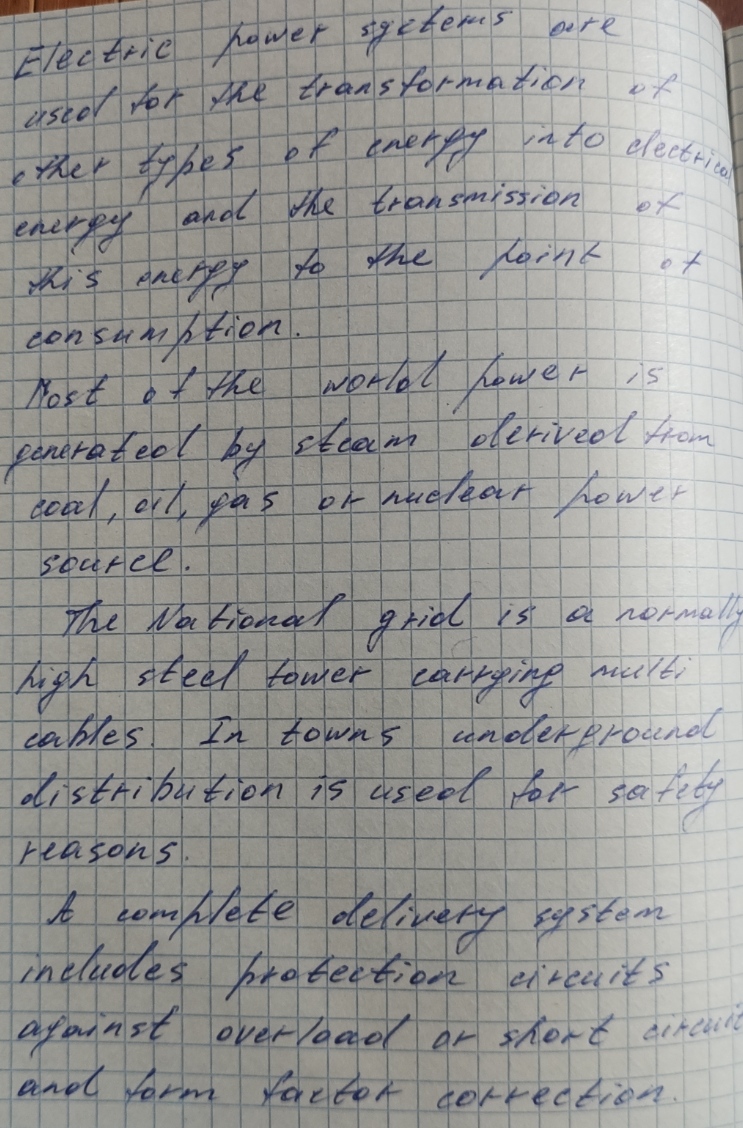 Electric power systems are
used for the transformation of
other types of energy into electrical
energy and the transmission of
this energy to the point of
consumption.
Most of the world power is
generated by steam derived from
coal, oil, gas or nuclear power
source.
The National grid is a normally
high steel tower carrying multi
cables. In towns underground
distribution is used for safety
reasons.
A complete delivery system
includes protection circuits
against overload or short circuit
and form factor correction.